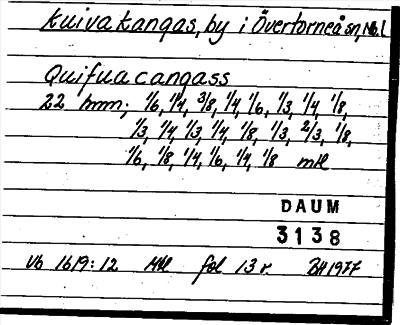 Kuivakangas, by i Övertorneå sn, Nb.l
Quifuacangass
22 hmn; 1/6, 1/4, 3/8, 1/4, 1/6, 1/3, 1/4, 1/8,
1/3, 1/4, 1/3, 1/4, 1/8, 1/3, 2/3, 1/8,
1/6, 1/8, 1/4, 1/6, 1/4, 1/8 mtl
DAUM
3138
Vb 1619:12 Mtl fol 13 r. BH 1977